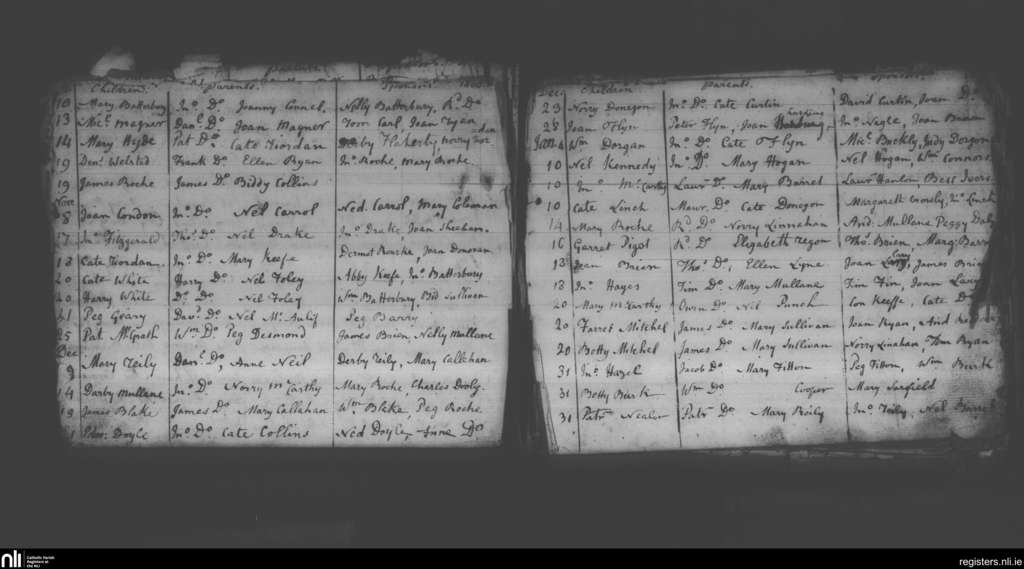 Children. Parents. Sponsors.
10 Mary Batterbury Jno. Do. Joanny Connel. Nelly Batterbury, Rd. Do
13 Micl. Magner Danl. Do Joan Magner Tom Carl, Joan Ryan
14 Mary Hyde Pat Do. Cate Riordan Flaherty, Norry
19 Denl. Welsted Frank Do. Ellen Ryan Jno. Roche, Mary Roche
19 James Roche James Do. Biddy Collins
Nov
8 Joan Condon Jno. Do Nel Carrol Ned. Carrol, Mary Coleman
17 Jno. Fitzgerald Thos. Do. Nel Drake Jno. Drake, Joan Sheehan
18 Cate Riordan Jno. Do. Mary Keefe Dermot Rourke, Joan Donovan
20 Cate White Harry Do. Nel Foley Abby Keefe, Jno. Batterbury
20 Harry White Do. Do. Nel Foley Wm. Batterbury, Bid Sullivan
21 Peg Geary Davd. Do. Nel Mc. Aulif Peg Barry
25 Pat McGrath Wm. Do Peg Desmond James Brien, Nelly Mullane
Dec
9 Mary Reily Danl. Do, Anne Neil Derby Reily, Mary Callehan
14 Darby Mullane Jno. Do Norry McCarthy Mary Roche, Charles Dooly.
19 James Blake James Do. Mary Callahan Wm. Blake, Peg Roche
Doyle Jno. Do Cate Collins Ned Doyle, Anne Do
Dec. Children Parents. Sponsors.
23 Norry Donegon Jno. Do. Cate Curtin David Curtin, Joan Do.
28 Joan Flyn Peter Flyn, Joan Jno. Nagle, Joan
4 Wm Dorgan Jno. Do. Cate O'Flyn Micl. Buckly, Judy Dorgon
10 Nel Kennedy Jno. Do. Mary Hogan Nel Hogan, Wm Connors
10 Jno. McCarthy Laurce. Do. Mary Barret Laurce Hanlon, Bess
10 Cate Linch Maur. Do. Cate Donegon Margarett Crowly, Jno. Linch
14 Mary Roche Rd. Do. Norry Linnahan And. Mullane Peggy Daly
16 Garret Pigot Rd. Do Elizabeth Regon Thos. Brien, Marg:
18 Joan Brien Thos. Do., Ellen Lyne Joan James
18 Jno. Hayes Tim Do. Mary Mullane Tim Tim, Joan
20 Mary McCarthy Owen Do. Nel Punch Con Keeffe, Cate Do
20 Garret Mitchel James Do. Mary Sullivan Joan Ryan, And
20 Betty Mitchel James Do. Mary Sullivan Norry Linahan, Tom Ryan
31 Jno. Hazel Jacob Do. Mary Fitton Peg Fitton, Wm Burk
31 Betty Burk Wm Do Cooper Mary Sarsfield
31 Patr. Nealon Patr Do Mary Reily Jno. Reily, Nel Barret
nli
Catholic Parish
Registers at
the NLI
registers.nli.ie